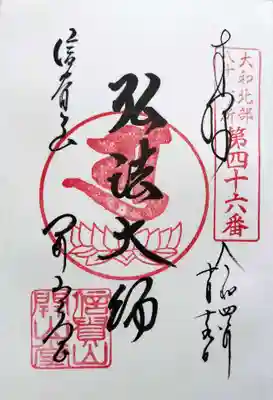 奉拝
大和北部
八十八ヶ所
第四十六番
弘法大師
信貴山
開山堂
信貴山
開山堂